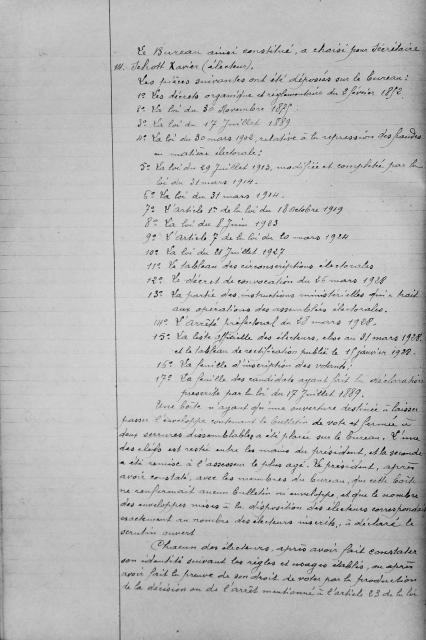 Le Bureau ainsi constitué, a choisi pour Secrétaire
M. Schott Xavier (électeur).
Les pièces suivantes ont été déposées sur le bureau:
1° Les décrets organique et réglementaire du 2 février 1852
2° La loi du 30 Novembre 1875
3° La loi du 17 Juillet 1889
4° La loi du 30 mars 1902, relative à la répression des fraudes
en matière électorale;
5° La loi du 29 Juillet 1913, modifiée et complétée par la
loi du 31 mars 1914.
6° La loi du 31 mars 1914.
7° L'Article 1er de la loi du 18 octobre 1919
8° La loi du 8 Juin 1923
9° L'Article 7 de la loi du 20 mars 1924
10° La loi du 21 Juillet 1927
11° Le tableau des circonscriptions électorales
12° Le décret de convocation du 26 mars 1928
13° La partie des instructions ministérielles qui a trait
aux opérations des assemblées électorales.
14° L'Arrêté préfectoral du 28 mars 1928.
15° La liste officielle des électeurs, close au 31 mars 1928,
et le tableau de rectification publié le 15 janvier 1928.
16° La feuille d'inscription des votants;
17° La feuille des candidats ayant fait la déclaration
prescrite par la loi du 17 Juillet 1889.
Une boîte n'ayant qu'une ouverture destinée à laisser
passer l'enveloppe contenant le bulletin de vote et fermée à
deux serrures dissemblables a été placée sur le bureau. L'une
des clefs est restée entre les mains du président, et la seconde
a été remise à l'assesseur le plus âgé. Le président, après
avoir constaté, avec les membres du bureau, que cette boîte
ne renfermait aucun bulletin ni enveloppe, et que le nombre
des enveloppes mises à la disposition des électeurs correspondait
exactement au nombre des électeurs inscrits, a déclaré le
scrutin ouvert
Chacun des électeurs, après avoir fait constater
son identité suivant les règles et usages établis, ou après
avoir fait la preuve de son droit de voter par la production
de la décision ou de l'arrêt mentionné à l'article 23 de la loi